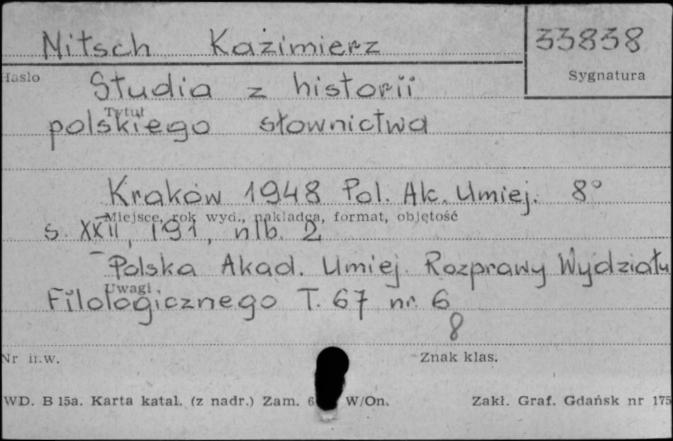 Nitsch Kazimierz 33838
Hasło Sygnatura
Studia z historii
Tytuł
polskiego słownictwa
Kraków 1948 Pol. Ak. Umiej. 8°
Miejsce, rok wyd., nakładca, format, objętość
s. XXII, 191, nlb. 2
Polska Akad. Umiej. Rozprawy Wydziału
Uwagi
Filologicznego T. 67 nr. 6
8
Nr inw. Znak klas.
WD. B 15a. Karta katal. (z nadr.) Zam. 6 W/On. Zakł. Graf. Gdańsk nr 175